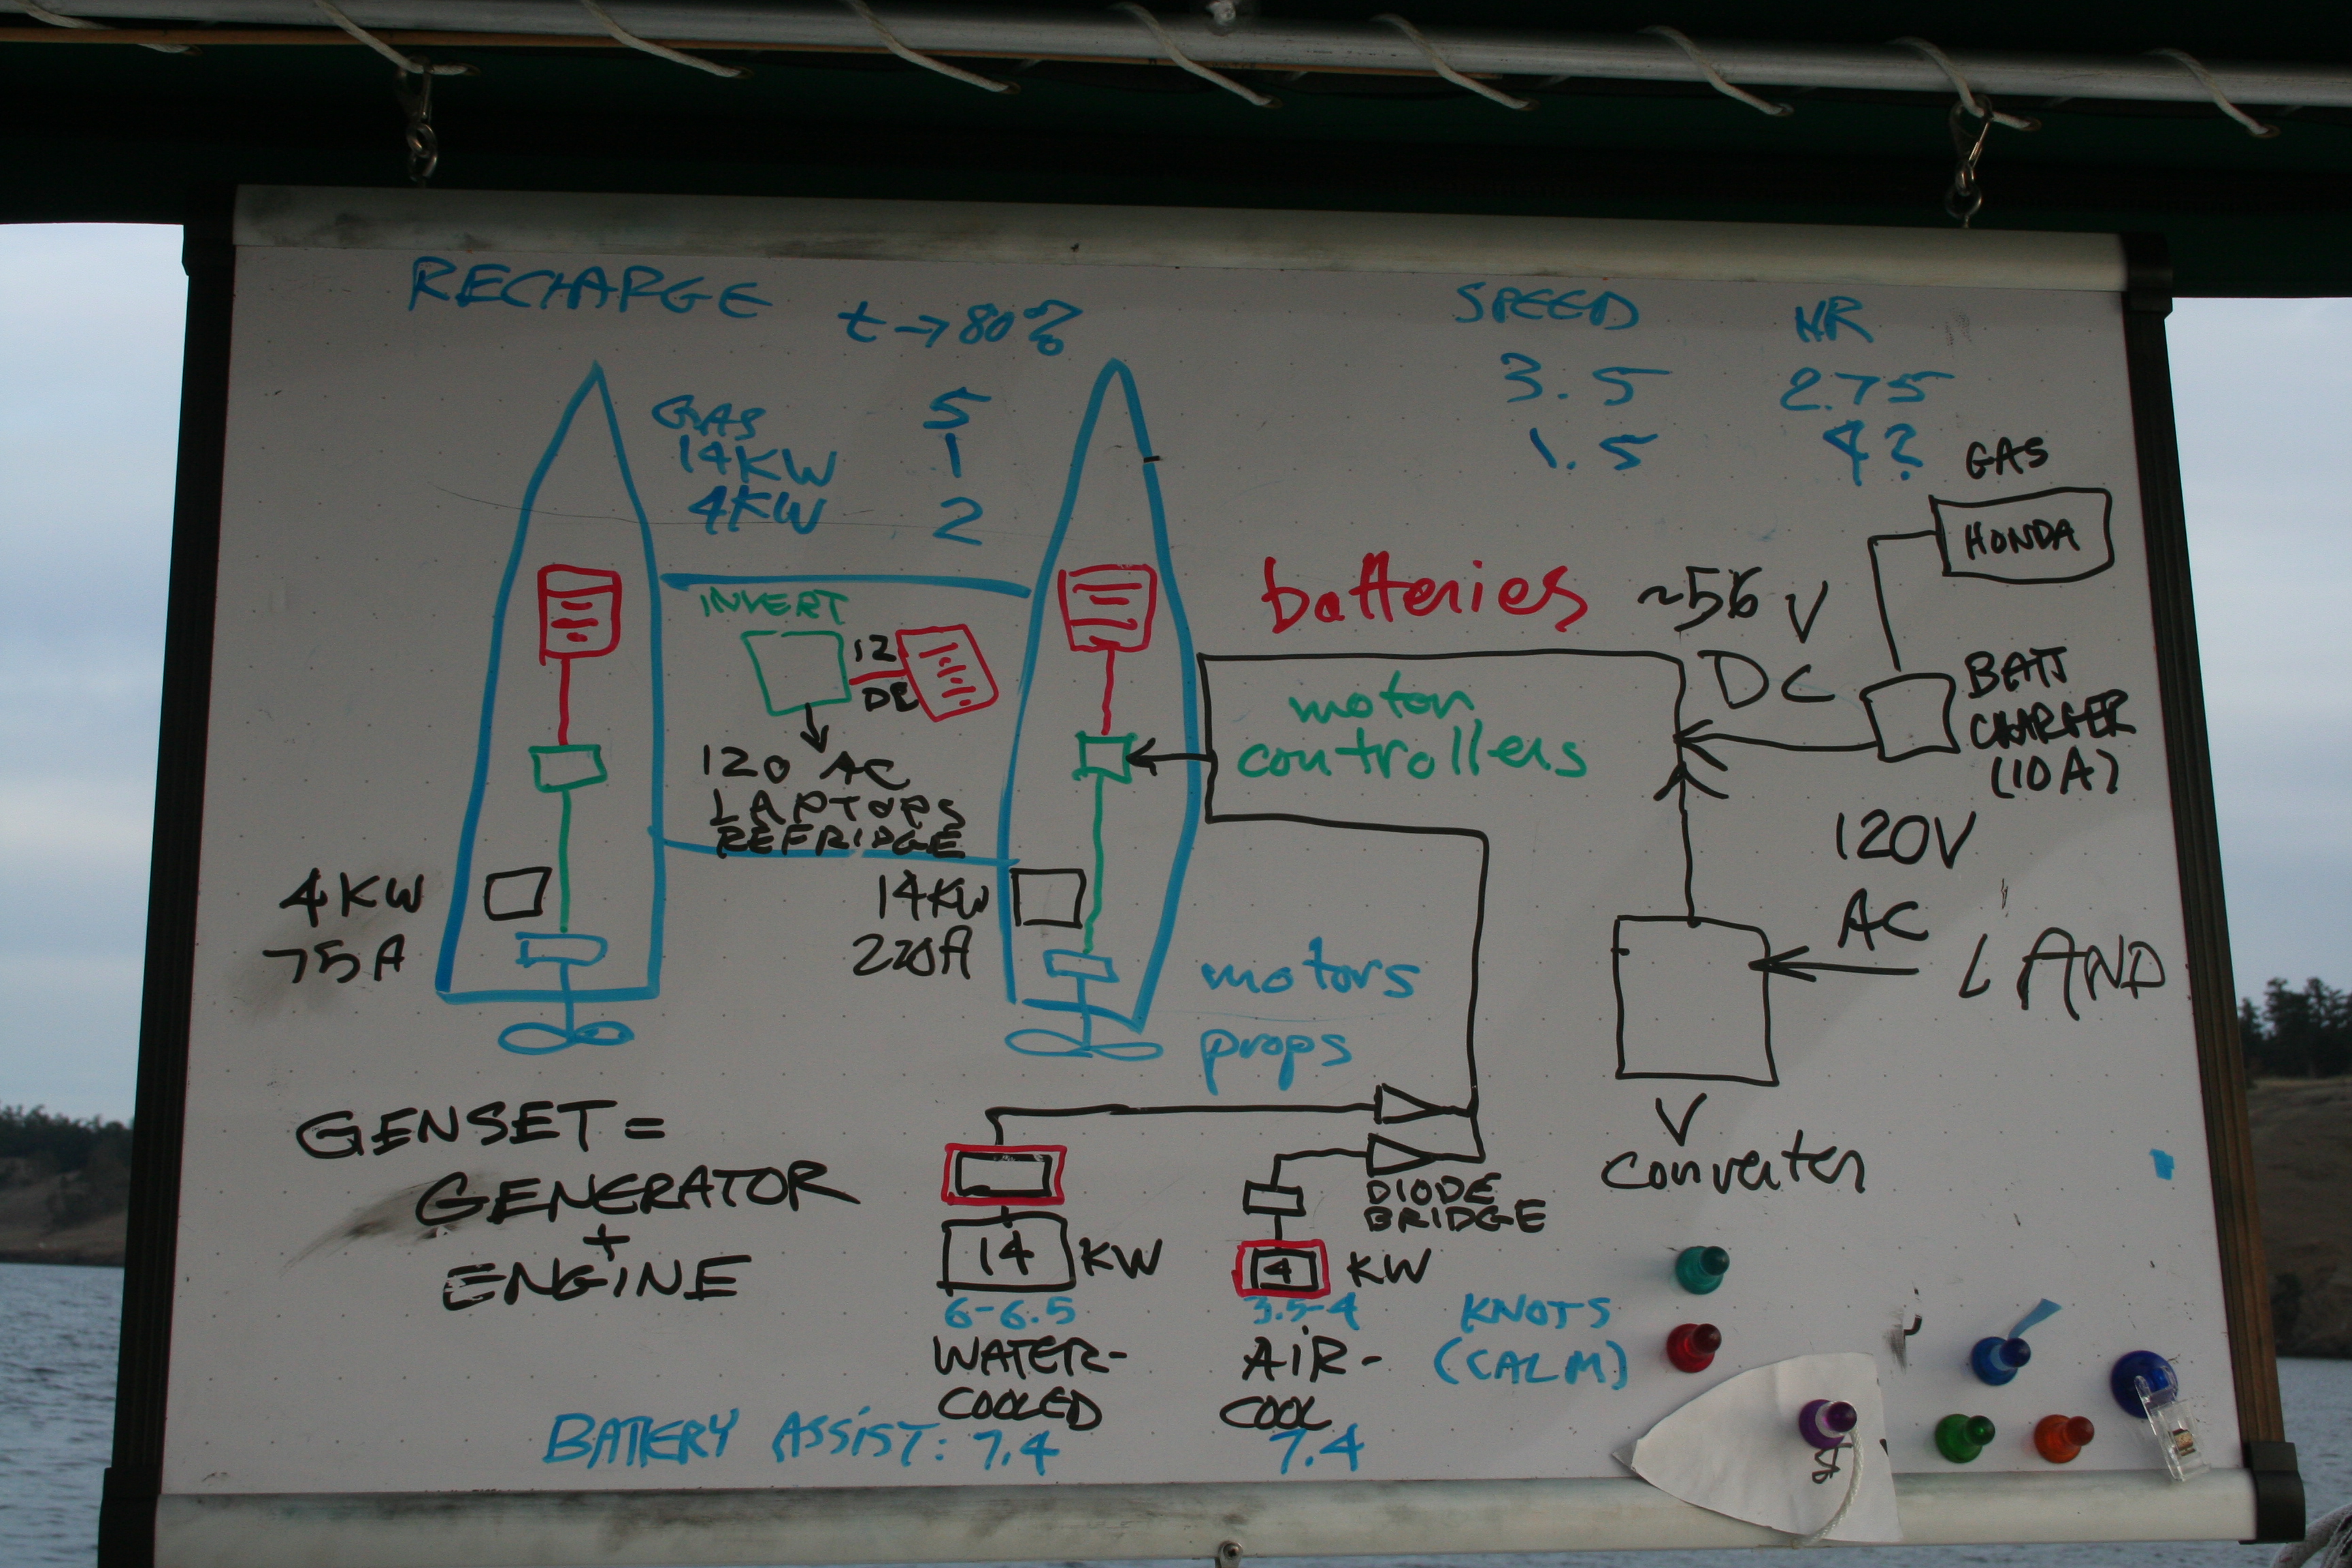 RECHARGE t → 80%
GAS 5
14KW 1
4KW 2
SPEED HR
3.5 2.75
1.5 4?
GAS
HONDA
batteries
~56 V
DC
BATT
CHARGER
(10A)
INVERT
12
DC
120 AC
LAPTOPS
REFRIDGE
motor
controllers
120V
AC
LAND
V
converter
4KW
75A
14KW
220A
motors
props
GENSET =
GENERATOR
+
ENGINE
DIODE
BRIDGE
14 KW
4 KW
6-6.5 3.5-4 KNOTS
(CALM)
WATER-
COOLED
AIR-
COOL
BATTERY ASSIST: 7.4 7.4